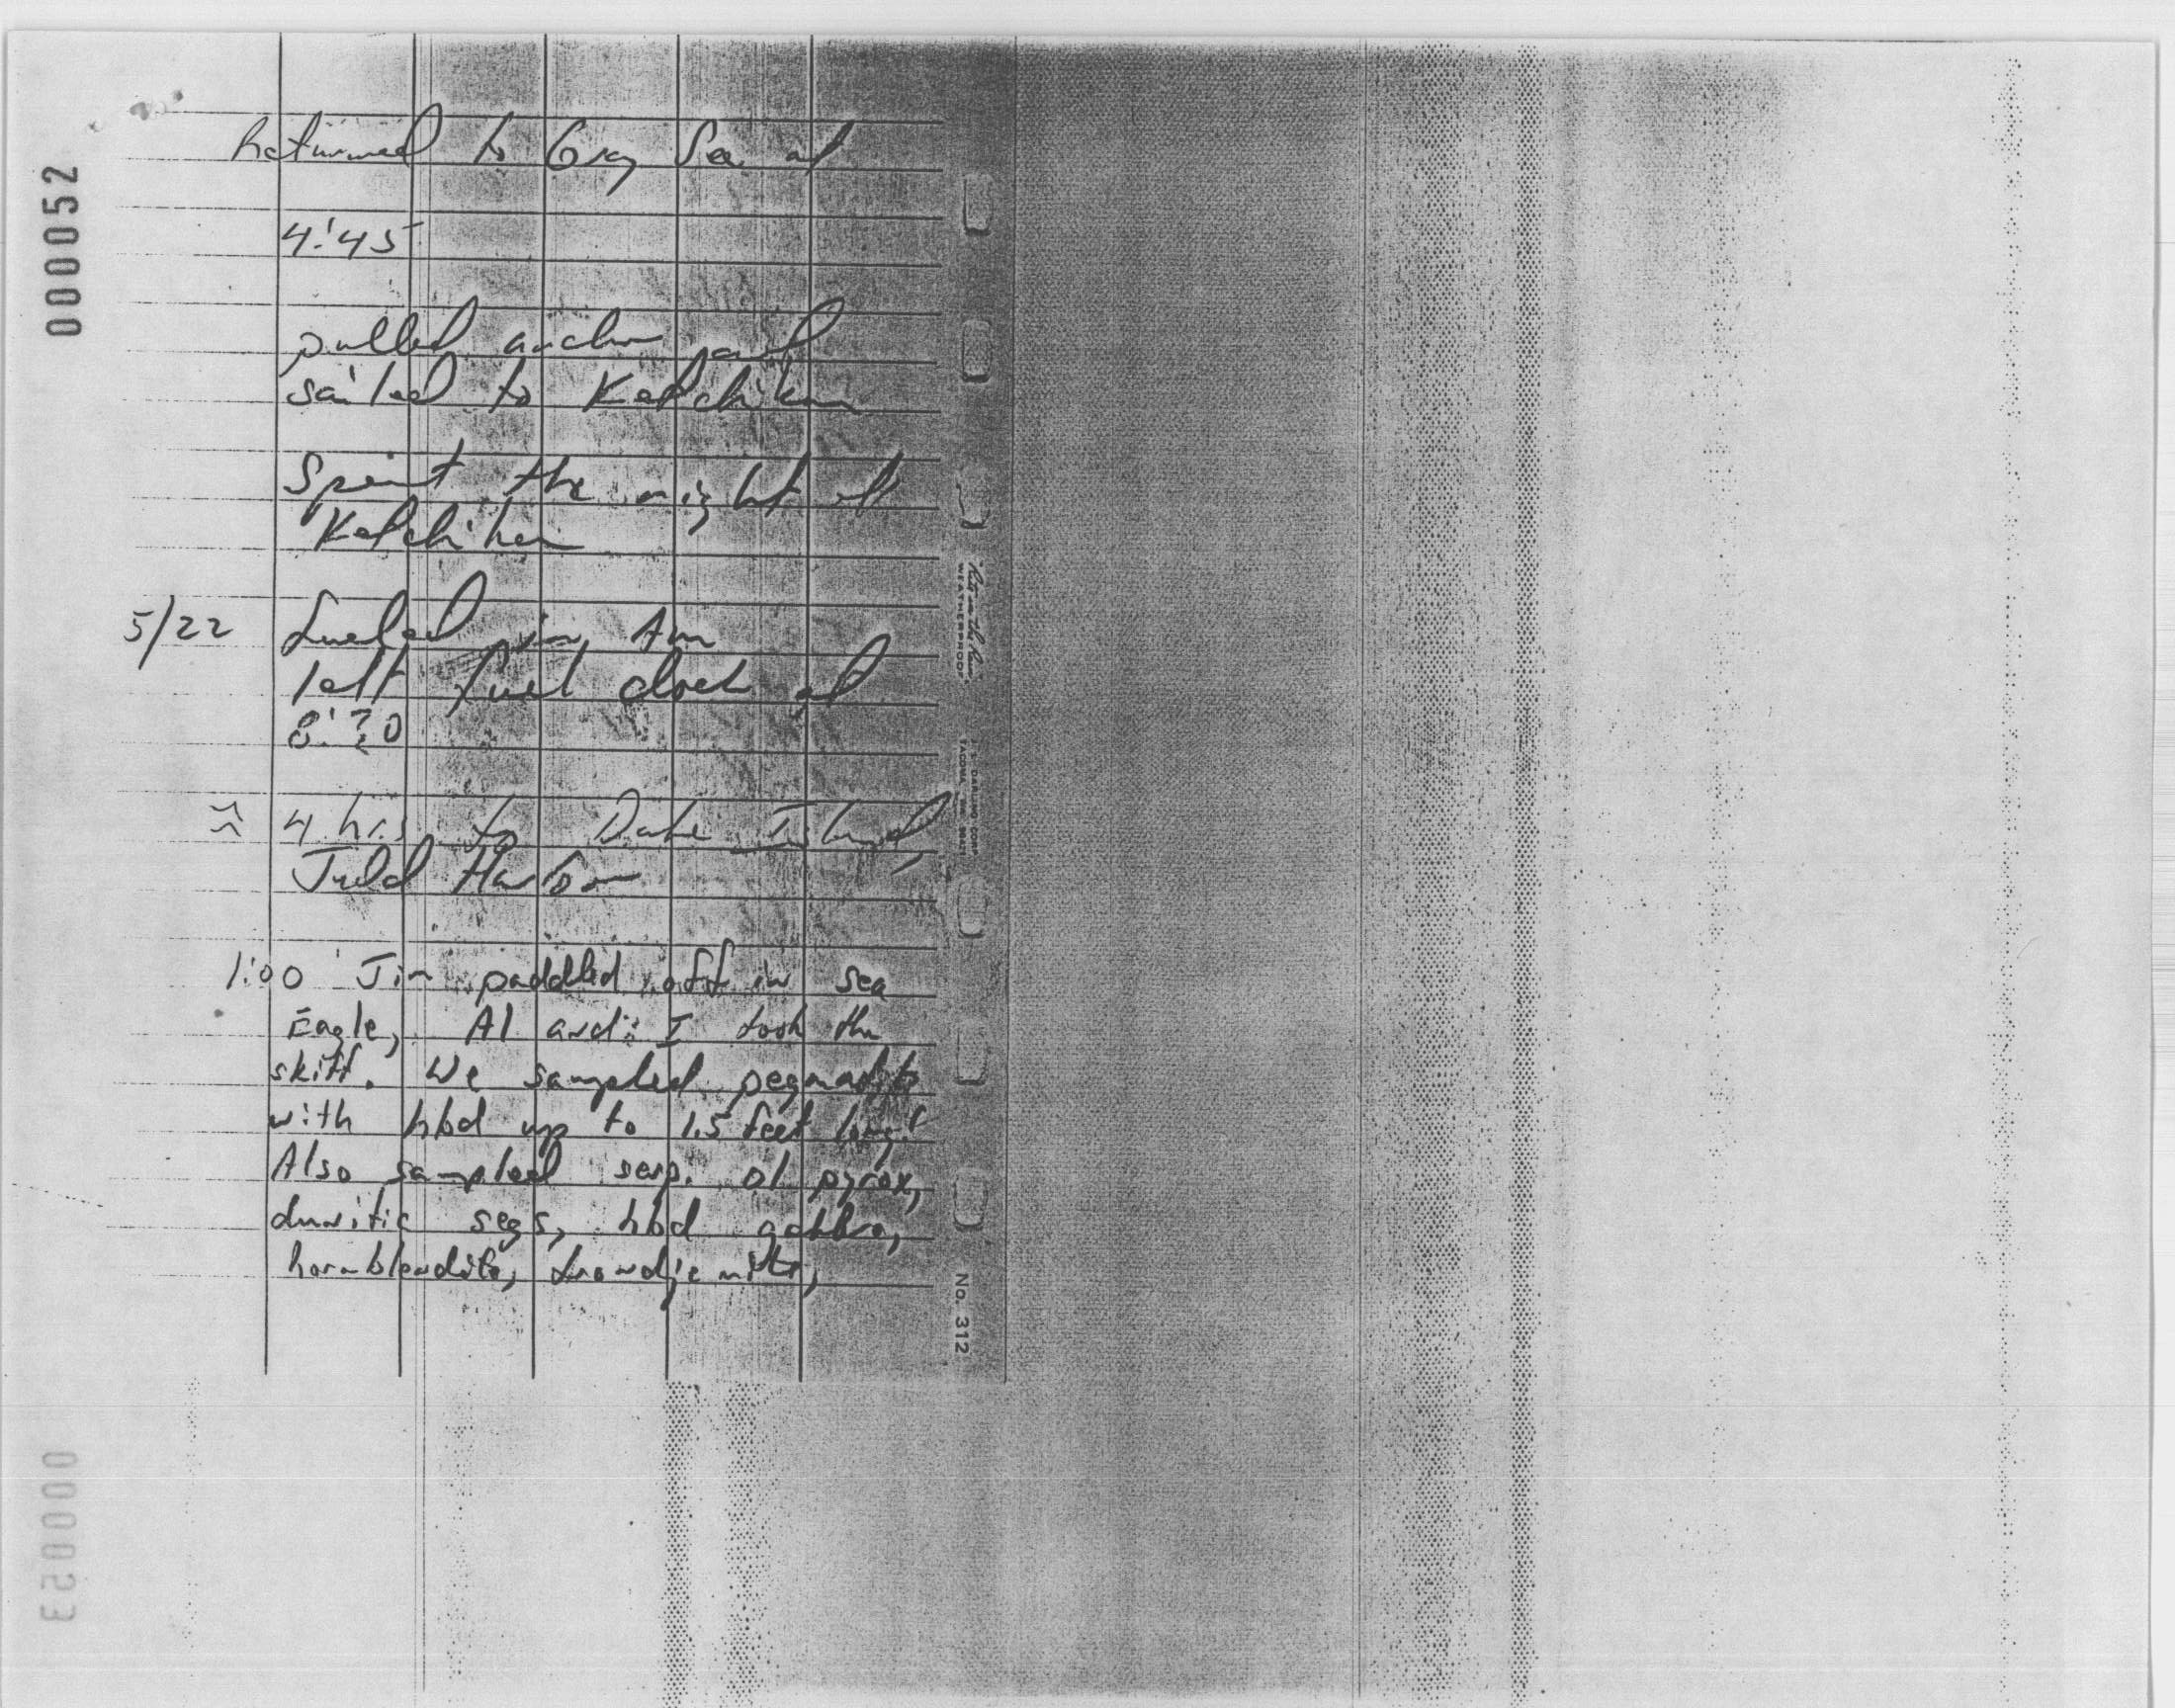 000052
Returned to Gray Sea at
4:45
pulled anchor and
sailed to Ketchikan
Spent the night at
Ketchikan
5/22 fueled in Am
left fuel dock at
8:20
≈ 4 hrs to Duke Island,
Judd Harbor
1:00 Jim paddled off in sea
Eagle, Al and I took the
skiff. We sampled pegmatite
with hbd up to 1.5 feet long!
Also sampled serp. ol pyrox,
dunitic segs, hbd gabbro,
hornblendite, trondjemite,
WEATHERPROOF
J. L. DARLING CORP
TACOMA, WA. 98421
No. 312
000023